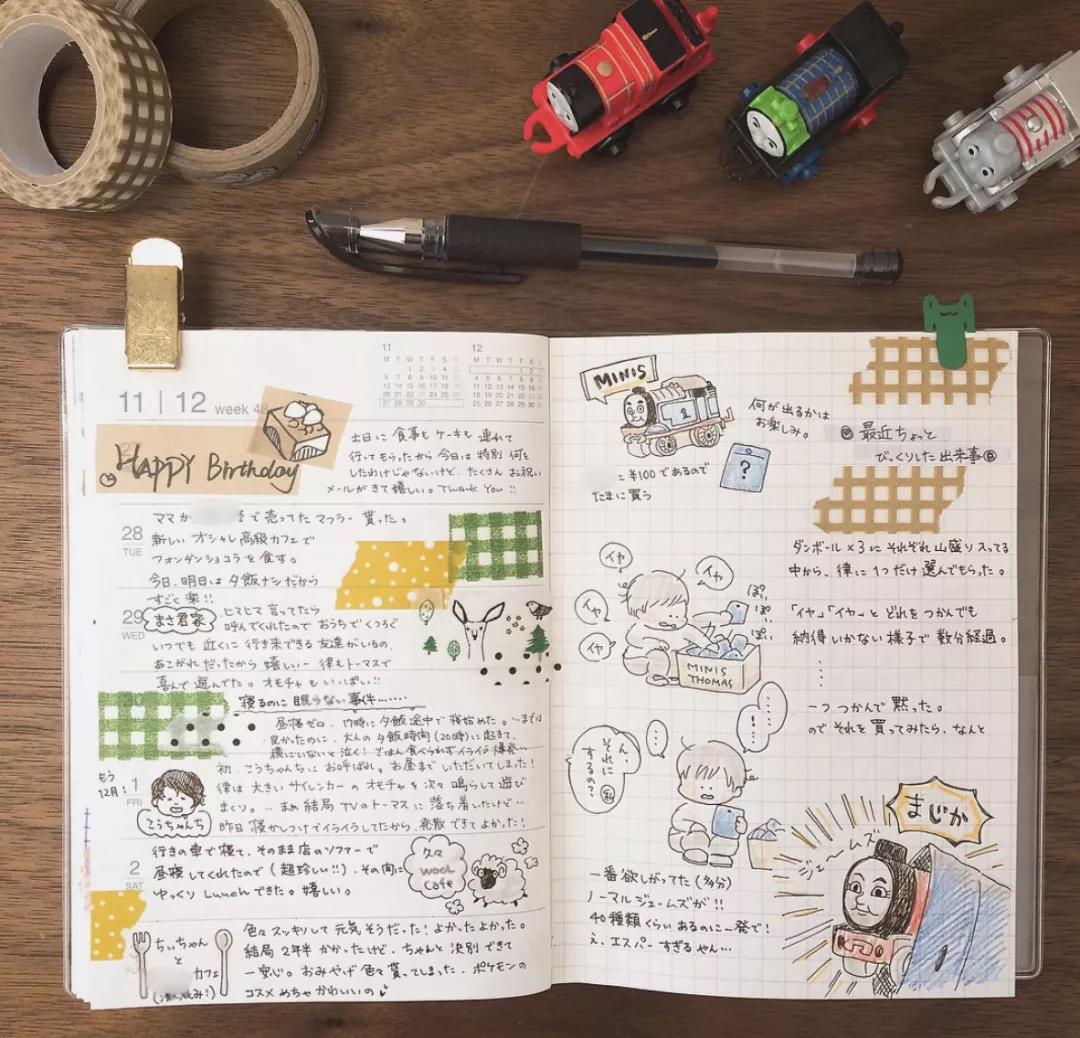 11 | 12 week 48
11
M T W T F S S
1 2 3 4 5
6 7 8 9 10 11 12
13 14 15 16 17 18 19
20 21 22 23 24 25 26
27 28 29 30
12
M T W T F S S
1 2 3
4 5 6 7 8 9 10
11 12 13 14 15 16 17
18 19 20 21 22 23 24
25 26 27 28 29 30 31
HAPPY Birthday
土日に食事もケーキも連れて
行ってもらったから今日は特別何を
したわけじゃないけど、たくさんお祝い
メールがきて嬉しい。Thank You !!
28
TUE
ママか で売ってたマフラー貰った。
新しいオシャレ高級カフェで
フォンダンショコラを食す。
今日、明日は夕飯ナシだから
すごく楽!!
29
WED
まさ君家
ヒマヒマ言ってたら
呼んでくれたのでおうちでくつろぐ
いつでも近くに行き来できる友達がいるの、
あこがれだったから嬉しいー 律もトーマスで
喜んで遊んでた。オモチャもいっぱい!!
寝るのに眠らない事件……
昼寝ゼロ、17時に夕飯途中で寝始めた。…までは
良かったのに、大人の夕飯時間(20時)に起きて、
横にいないと泣く!ごはん食べられずイライラ爆発…
もう
12月!
1
FRI
こうちゃんち
初、こうちゃんちにお呼ばれ。お昼までいただいてしまう!
律は大きいサイレンカーのオモチャを次々鳴らして遊び
まくり。… まぁ結局TVのトーマスに落ち着いたけど…
昨日寝かしつけでイライラしてたから、発散できてよかった!
2
SAT
行きの車で寝て、そのまま店のソファーで
昼寝してくれたので(超珍しい!!)、その間に
ゆっくりLunchできた。嬉しい。
久々
wool
cafe
ちぃちゃん
と
カフェ
色々スッキリして元気そうだった!よかったよかった。
結局2年半かかったけど、ちゃんと決別できて
一安心。おみやげ色々貰ってしまった、ポケモンの
コスメめちゃかわいいの
MINIS
1
何が出るかは
お楽しみ。
?
こ¥100であるので
たまに買う
最近ちょっと
びっくりした出来事
ダンボール×3にそれぞれ山盛り入ってる
中から、律に1つだけ選んでもらった。
イヤ
イヤ
イヤ
イヤ
ぽい
ぽい
ぽい
MINIS
THOMAS
「イヤ」「イヤ」とどれをつかんでも
納得いかない様子で数分経過。
一つつかんで黙った。
のでそれを買ってみたら、なんと
…
…!
ん、
それに
するの?
一番欲しがってた(多分)
ノーマルジェームズが!!
40種類くらいあるのに一発で!
え、エスパーすぎるやん…
まじか
ジェームズ